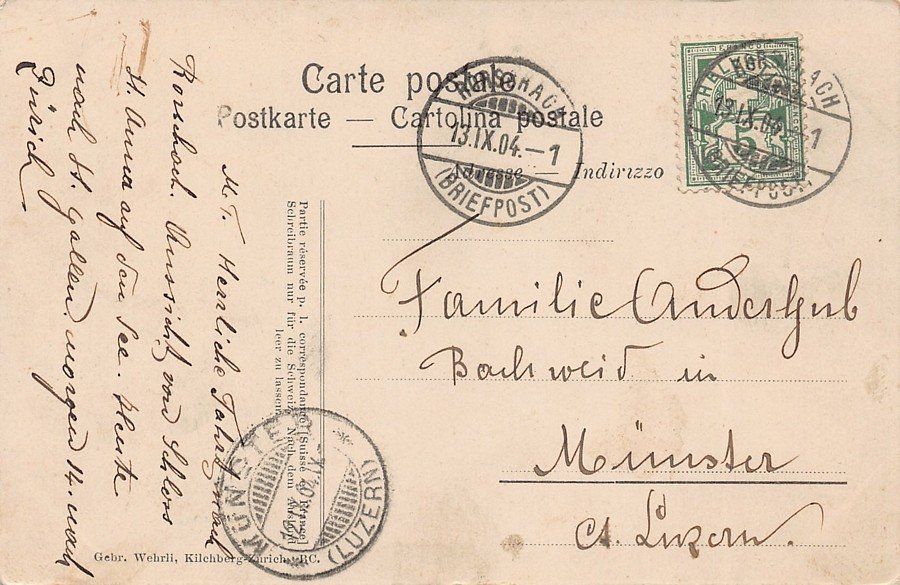 Carte postale
Postkarte — Cartolina postale
Adresse — Indirizzo
RORSCHACH
13.IX.04.–1
(BRIEFPOST)
HELVETIA
RORSCHACH
13.IX.04.–1
(BRIEFPOST)
5
Familie Anderhub
Bachweid in
Münster
Ct. Luzern.
M. T. Herrliche Fahrt nach
Rorschach. Aussicht von Schloss
St. Anna auf den See. Heute
nach St. Gallen, morgen 14. nach
Zürich.
Partie réservée p. l. correspondance [Suisse & France]
Schreibraum nur für die Schweiz. Nach dem Ausland
leer zu lassen
MÜNSTER
IX.04
(LUZERN)
Gebr. Wehrli, Kilchberg-Zürich